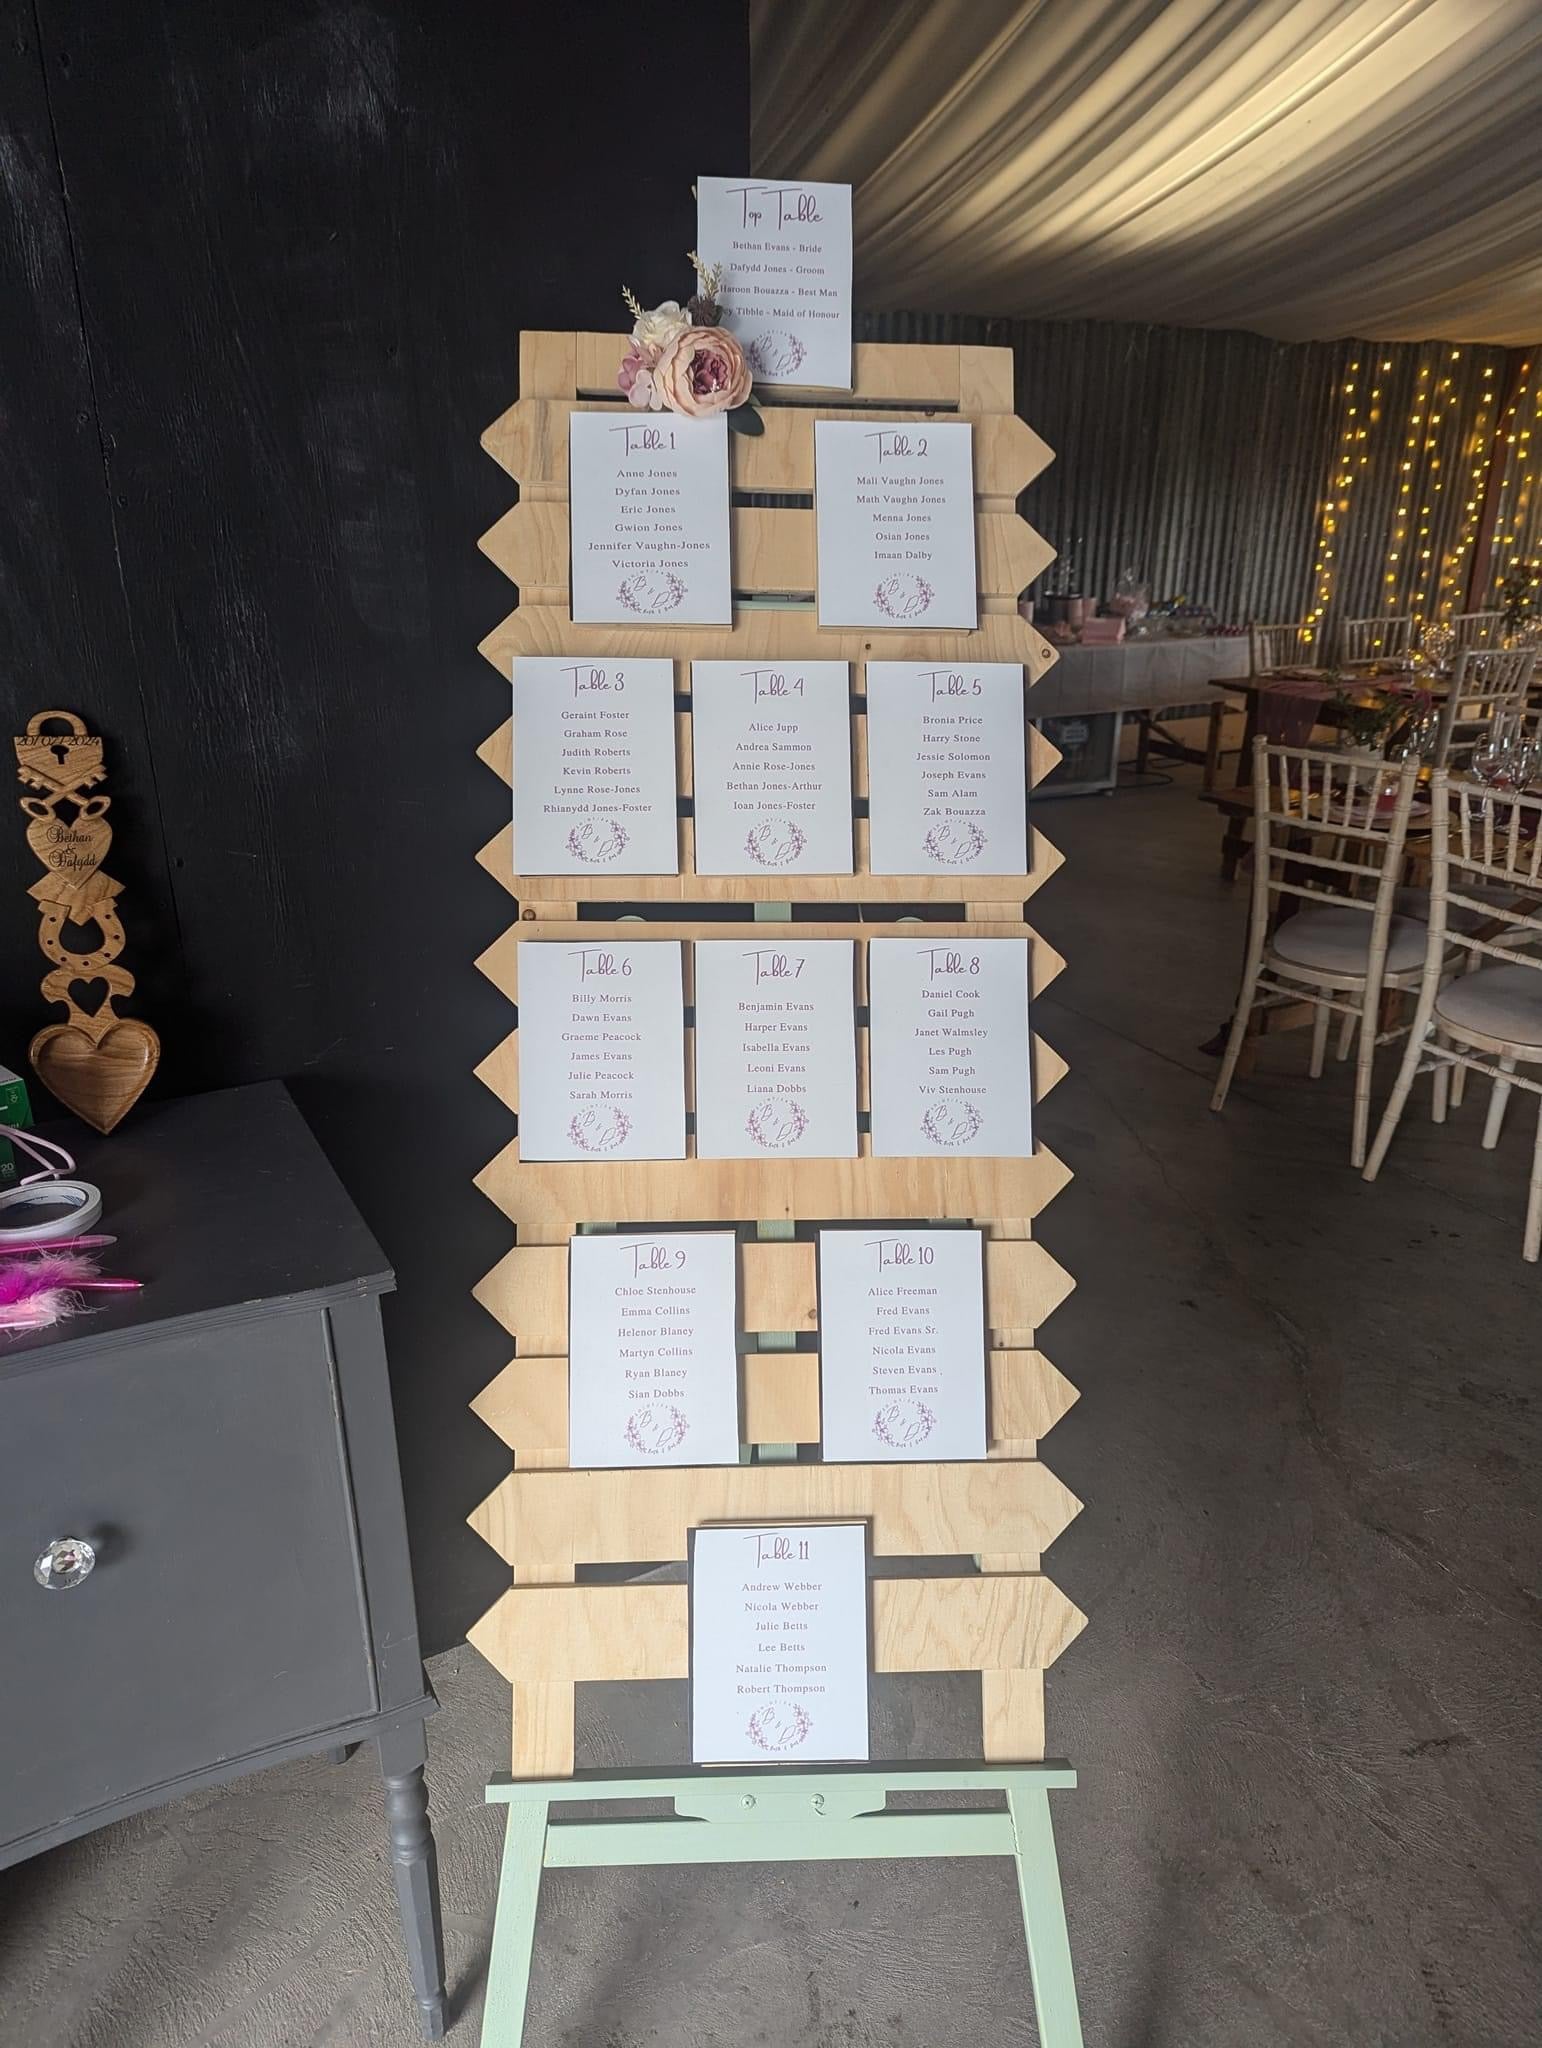 Top Table
Bethan Evans - Bride
Dafydd Jones - Groom
Haroon Bouazza - Best Man
Tibble - Maid of Honour
Table 1
Anne Jones
Dyfan Jones
Eric Jones
Gwion Jones
Jennifer Vaughn-Jones
Victoria Jones
B & D
Table 2
Mali Vaughn Jones
Math Vaughn Jones
Menna Jones
Osian Jones
Imaan Dalby
B & D
Table 3
Geraint Foster
Graham Rose
Judith Roberts
Kevin Roberts
Lynne Rose-Jones
Rhianydd Jones-Foster
B & D
Table 4
Alice Jupp
Andrea Sammon
Annie Rose-Jones
Bethan Jones-Arthur
Ioan Jones-Foster
B & D
Table 5
Bronia Price
Harry Stone
Jessie Solomon
Joseph Evans
Sam Alam
Zak Bouazza
B & D
20/07/2024
Bethan
&
Dafydd
Table 6
Billy Morris
Dawn Evans
Graeme Peacock
James Evans
Julie Peacock
Sarah Morris
B & D
Table 7
Benjamin Evans
Harper Evans
Isabella Evans
Leoni Evans
Liana Dobbs
B & D
Table 8
Daniel Cook
Gail Pugh
Janet Walmsley
Les Pugh
Sam Pugh
Viv Stenhouse
B & D
20
Table 9
Chloe Stenhouse
Emma Collins
Helenor Blaney
Martyn Collins
Ryan Blaney
Sian Dobbs
B & D
Table 10
Alice Freeman
Fred Evans
Fred Evans Sr.
Nicola Evans
Steven Evans
Thomas Evans
B & D
Table 11
Andrew Webber
Nicola Webber
Julie Betts
Lee Betts
Natalie Thompson
Robert Thompson
B & D